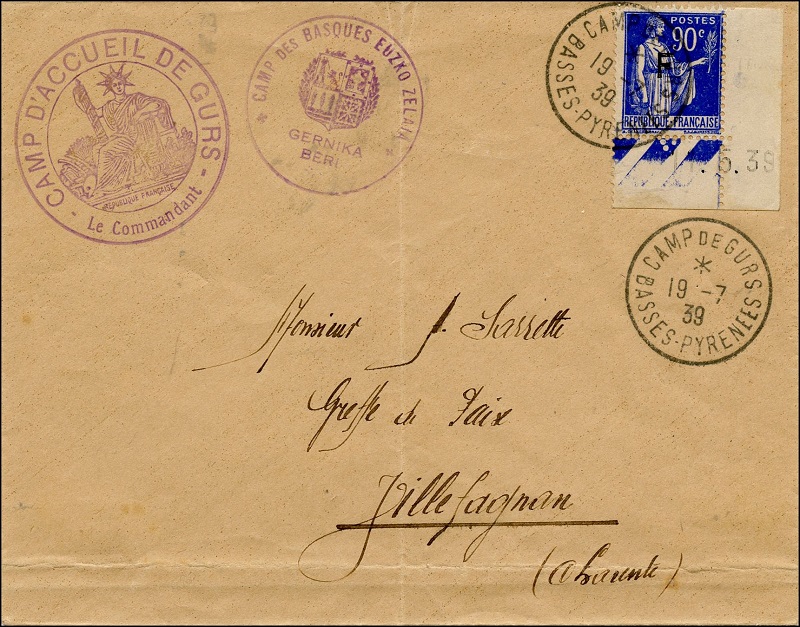 CAMP D'ACCUEIL DE GURS
RÉPUBLIQUE FRANÇAISE
Le Commandant
CAMP DES BASQUES EUZKO ZELAIA
GERNIKA
BERI
POSTES
90c
F
REPUBLIQUE FRANÇAISE
5.39
CAMP
19 -7
39
BASSES-PYRENEES
CAMP DE GURS
19 -7
39
BASSES-PYRENEES
Monsieur J. Sarrette
Greffe de Paix
Villefagnan
(Charente)